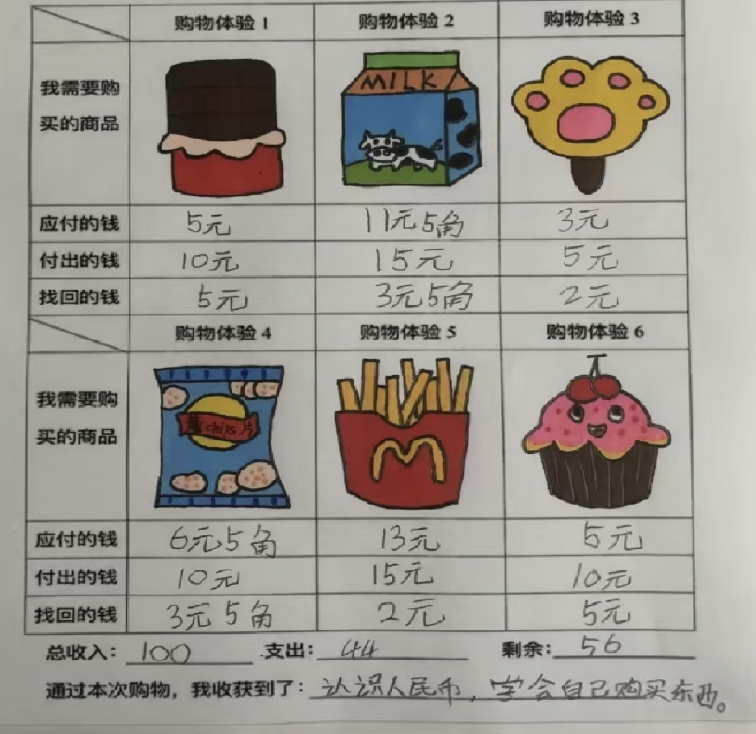 购物体验 1 购物体验 2 购物体验 3
我需要购
买的商品
MILK
应付的钱 5元 11元5角 3元
付出的钱 10元 15元 5元
找回的钱 5元 3元5角 2元
购物体验 4 购物体验 5 购物体验 6
我需要购
买的商品
薯chips片
应付的钱 6元5角 13元 5元
付出的钱 10元 15元 10元
找回的钱 3元5角 2元 5元
总收入: 100 支出: 44 剩余: 56
通过本次购物，我收获到了: 认识人民币，学会自己购买东西。